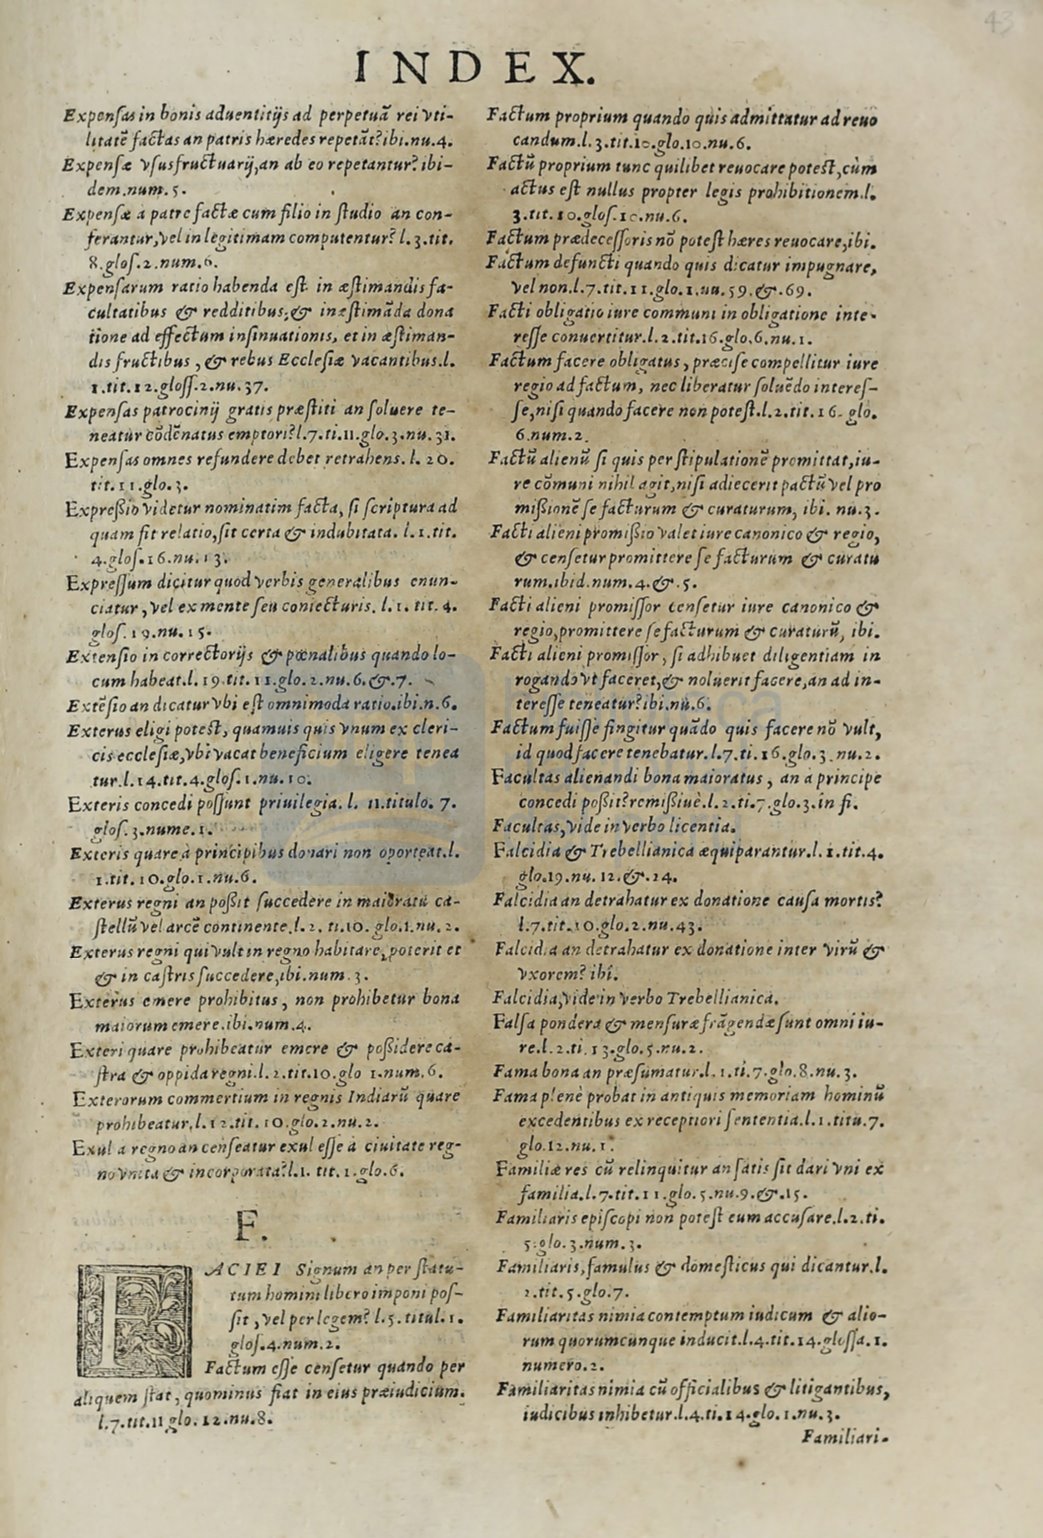 43
INDEX.
Expensas in bonis aduentitijs ad perpetuã rei vti-
litatẽ factas an patris hæredes repetãt? ibi. nu. 4.
Expensæ vsufructuarij, an ab eo repetantur? ibi-
dem. num. 5.
Expensæ à patre factæ cum filio in studio an con-
ferantur, vel in legitimam computentur? l. 3. tit.
8. glos. 2. num. 6.
Expensarum ratio habenda est in æstimandis fa-
cultatibus & redditibus, & inæstimãda dona
tione ad effectum insinuationis, et in æstiman-
dis fructibus, & rebus Ecclesiæ vacantibus. l.
1. tit. 12. gloss. 2. nu. 37.
Expensas patrocinij gratis præstiti an soluere te-
neatur cõdẽnatus emptori? l. 7. ti. 11. glo. 3. nu. 31.
Expensas omnes refundere debet retrahens. l. 20.
tit. 11. glo. 3.
Expreßio videtur nominatim facta, si scriptura ad
quam fit relatio, sit certa & indubitata. l. 1. tit.
4. glos. 16. nu. 13.
Expressum dicitur quod verbis generalibus enun-
ciatur, vel ex mente seu coniecturis. l. 1. tit. 4.
glos. 19. nu. 15.
Extensio in correctorijs & pœnalibus quando lo-
cum habeat. l. 19. tit. 11. glo. 2. nu. 6. &. 7.
Extẽsio an dicatur vbi est omnimoda ratio. ibi. n. 6.
Exterus eligi potest, quamuis quis vnum ex cleri-
cis ecclesiæ, vbi vacat beneficium eligere tenea
tur. l. 14. tit. 4. glos. 1. nu. 10.
Exteris concedi possunt priuilegia. l. 11. titulo. 7.
glos. 3. nume. 1.
Exteris quare à principibus donari non oporteat. l.
1. tit. 10. glo. 1. nu. 6.
Exterus regni an poßit succedere in maioratu ca-
stellũ vel arcẽ continente. l. 2. ti. 10. glo. 1. nu. 2.
Exterus regni qui vult in regno habitare, poterit et
& in castris succedere, ibi. num. 3.
Exterus emere prohibitus, non prohibetur bona
maiorum emere. ibi. num. 4.
Exteri quare prohibeatur emere & poßidere ca-
stra & oppida regni. l. 2. tit. 10. glo 1. num. 6.
Exterorum commertium in regnis Indiarũ quare
prohibeatur, l. 12. tit. 10. glo. 2. nu. 2.
Exul à regno an censeatur exul esse à ciuitate reg-
no vnita & incorporata? l. 1. tit. 1. glo. 6.
F.
FACIEI Signum an per statu-
tum homini libero imponi pos-
sit, vel per legem? l. 5. titul. 1.
glos. 4. num. 2.
Factum esse censetur quando per
aliquem stat, quominus fiat in eius præiudicium.
l. 7. tit. 11 glo. 12. nu. 8.
Factum proprium quando quis admittatur ad reuo
candum. l. 3. tit. 10. glo. 10. nu. 6.
Factũ proprium tunc quilibet reuocare potest, cùm
actus est nullus propter legis prohibitionem. l.
3. tit. 10. glos. 10. nu. 6.
Factum prædecessoris nõ potest hæres reuocare, ibi.
Factum defuncti quando quis dicatur impugnare,
vel non. l. 7. tit. 11. glo. 1. nu. 59. &. 69.
Facti obligatio iure communi in obligatione inte-
resse conuertitur. l. 2. tit. 16. glo. 6. nu. 1.
Factum facere obligatus, præcise compellitur iure
regio ad factum, nec liberatur soluẽdo interes-
se, nisi quando facere non potest. l. 2. tit. 16. glo.
6. num. 2.
Factũ alienũ si quis per stipulationẽ promittat, iu-
re cõmuni nihil agit, nisi adiecerit pactũ vel pro
mißionẽ se facturum & curaturum, ibi. nu. 3.
Facti alieni promißio valet iure canonico & regio,
& censetur promittere se facturum & curatu
rum. ibid. num. 4. &. 5.
Facti alieni promissor censetur iure canonico &
regio, promittere se facturum & curaturũ, ibi.
Facti alieni promissor, si adhibuet diligentiam in
rogando vt faceret, & noluerit facere, an ad in-
teresse teneatur? ibi. nu. 6.
Factum fuisse fingitur quãdo quis facere nõ vult,
id quod facere tenebatur. l. 7. ti. 16. glo. 3. nu. 2.
Facultas alienandi bona maioratus, an à principe
concedi poßit? remißiuè. l. 2. ti. 7. glo. 3. in fi.
Facultas, vide in verbo licentia.
Falcidia & Trebellianica æquiparantur. l. 1. tit. 4.
glo. 19. nu. 12. &. 24.
Falcidia an detrahatur ex donatione causa mortis?
l. 7. tit. 10. glo. 2. nu. 43.
Falcidia an detrahatur ex donatione inter virũ &
vxorem? ibi.
Falcidia, vide in verbo Trebellianica.
Falsa pondera & mensuræ frãgendæ sunt omni iu-
re. l. 2. ti. 13. glo. 5. nu. 2.
Fama bona an præsumatur. l. 1. ti. 7. glo. 8. nu. 3.
Fama plenè probat in antiquis memoriam hominũ
excedentibus ex receptiori sententia. l. 1. titu. 7.
glo. 12. nu. 1.
Familiæ res cũ relinquitur an satis sit dari vni ex
familia. l. 7. tit. 11. glo. 5. nu. 9. &. 15.
Familiaris episcopi non potest eum accusare. l. 2. ti.
5. glo. 3. num. 3.
Familiaris, famulus & domesticus qui dicantur. l.
2. tit. 5. glo. 7.
Familiaritas nimia contemptum iudicum & alio-
rum quorumcunque inducit. l. 4. tit. 14. glossa. 1.
numero. 2.
Familiaritas nimia cũ officialibus & litigantibus,
iudicibus inhibetur. l. 4. ti. 14. glo. 1. nu. 3.
Familiari-